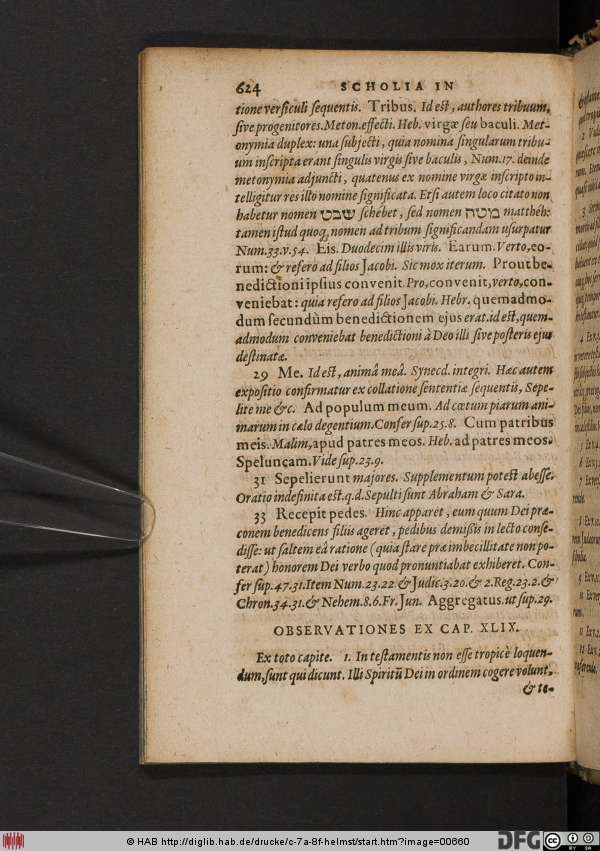 624 SCHOLIA IN
tione versiculi sequentis. Tribus. Id est, authores tribuum,
sive progenitores. Meton. effecti. Heb. virgæ seu baculi. Met-
onymia duplex: una subjecti, quia nomina singularum tribu-
um inscripta erant singulis virgis sive baculis, Num. 17. deinde
metonymia adjuncti, quatenus ex nomine virgæ inscripto in-
telligitur res illo nomine significata. Etsi autem loco citato non
habetur nomen שבט schébet, sed nomen מטה mattheh:
tamen istud quoq, nomen ad tribum significandam usurpatur
Num. 33. v. 54. Eis. Duodecim illis viris. Earum. Verto, eo-
rum: & refero ad filios Jacobi. Sic mox iterum. Prout be-
nedictioni ipsius convenit. Pro, convenit, verto, con-
veniebat: quia refero ad filios Jacobi. Hebr. quemadmo-
dum secundùm benedictionem ejus erat. id est, quem-
admodum conveniebat benedictioni à Deo illi sive posteris ejus
destinatæ.
29 Me. Id est, animâ meâ. Synecd. integri. Hæc autem
expositio confirmatur ex collatione sententiæ sequentis, Sepe-
lite me &c. Ad populum meum. Ad cœtum piarum ani-
marum in cælo degentium. Confer sup. 25.8. Cum patribus
meis. Malim, apud patres meos. Heb. ad patres meos.
Speluncam. Vide sup. 23.9.
31 Sepelierunt majores. Supplementum potest abesse.
Oratio indefinita est. q.d. Sepulti sunt Abraham & Sara.
33 Recepit pedes. Hinc apparet, eum quum Dei præ-
conem benedicens filiis ageret, pedibus demissis in lecto conse-
disse: ut saltem eâ ratione (quia stare præ imbecillitate non po-
terat) honorem Dei verbo quod pronuntiabat exhiberet. Con-
fer sup. 47.31. Item Num. 23.22 & Judic. 3.20. & 2. Reg. 23.2. &
Chron. 34.31. & Nehem. 8.6. Fr. Jun. Aggregatus. ut sup. 29.
OBSERVATIONES EX CAP. XLIX.
Ex toto capite. 1. In testamentis non esse tropicè loquen-
dum, sunt qui dicunt. Illi Spiritũ Dei in ordinem cogere volunt,
& te-
© HAB http://diglib.hab.de/drucke/c-7a-8f-helmst/start.htm?image=00660
DFG
CC BY SA